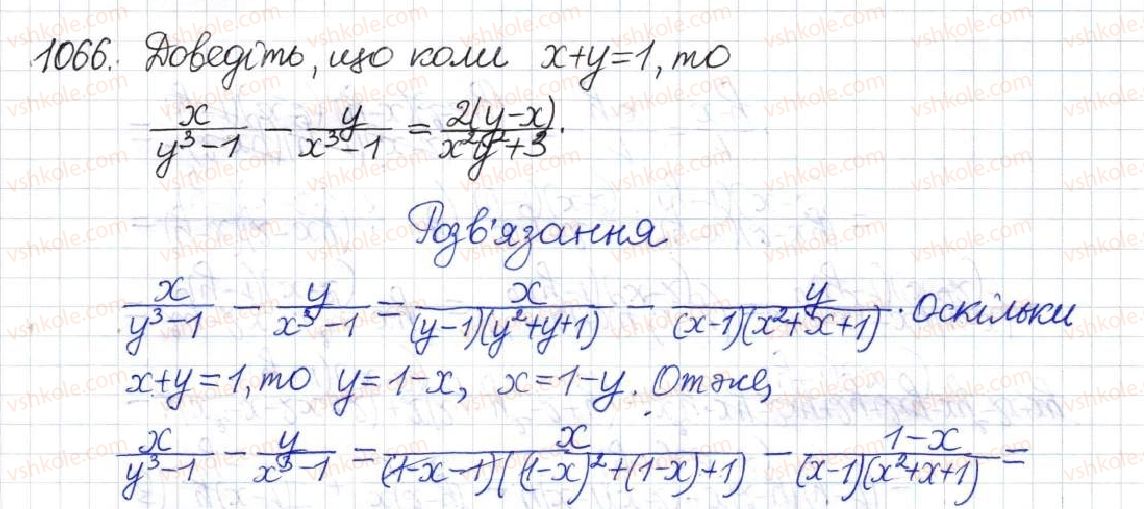 1066. Доведіть, що коли x+y=1, то
x/(y³−1) − y/(x³−1) = 2(y−x)/(x²y²+3).
Розв'язання
x/(y³−1) − y/(x³−1) = x/((y−1)(y²+y+1)) − y/((x−1)(x²+x+1)). Оскільки
x+y=1, то y=1−x, x=1−y. Отже,
x/(y³−1) − y/(x³−1) = x/((1−x−1)((1−x)²+(1−x)+1)) − (1−x)/((x−1)(x²+x+1)) =